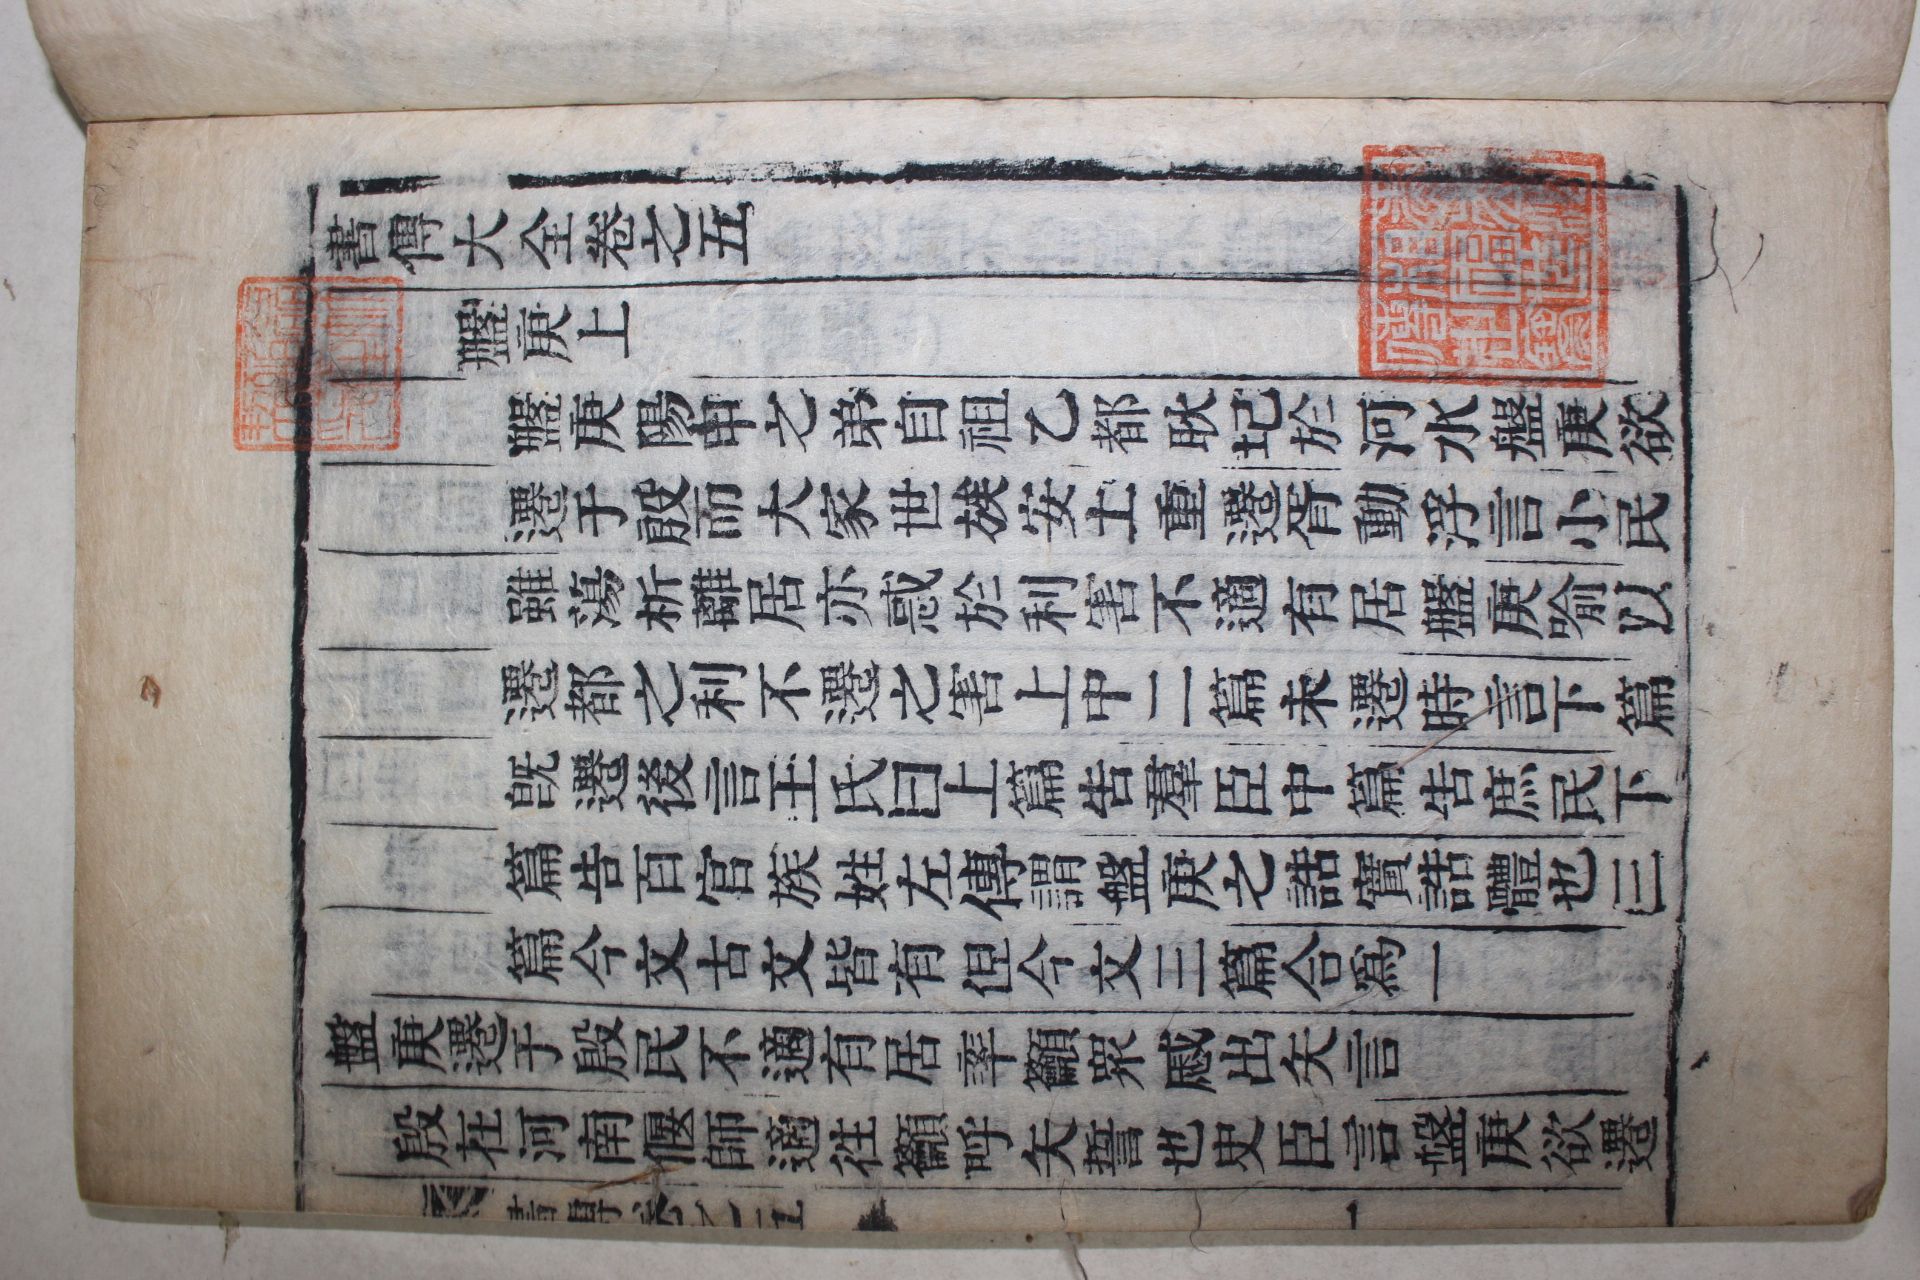 書傳大全卷之五
盤庚上
盤庚陽甲之弟自祖乙都耿圮於河水盤庚欲
遷于殷而大家世族安土重遷胥動浮言小民
雖蕩析離居亦惑於利害不適有居盤庚喩以
遷都之利不遷之害上中二篇未遷時言下篇
旣遷後言王氏曰上篇告羣臣中篇告庶民下
篇告百官族姓左傳謂盤庚之誥實誥體也三
篇今文古文皆有但今文三篇合爲一
盤庚遷于殷民不適有居率籲衆慼出矢言
殷在河南偃師適徃籲呼矢誓也史臣言盤庚欲遷
書傳卷之五
一